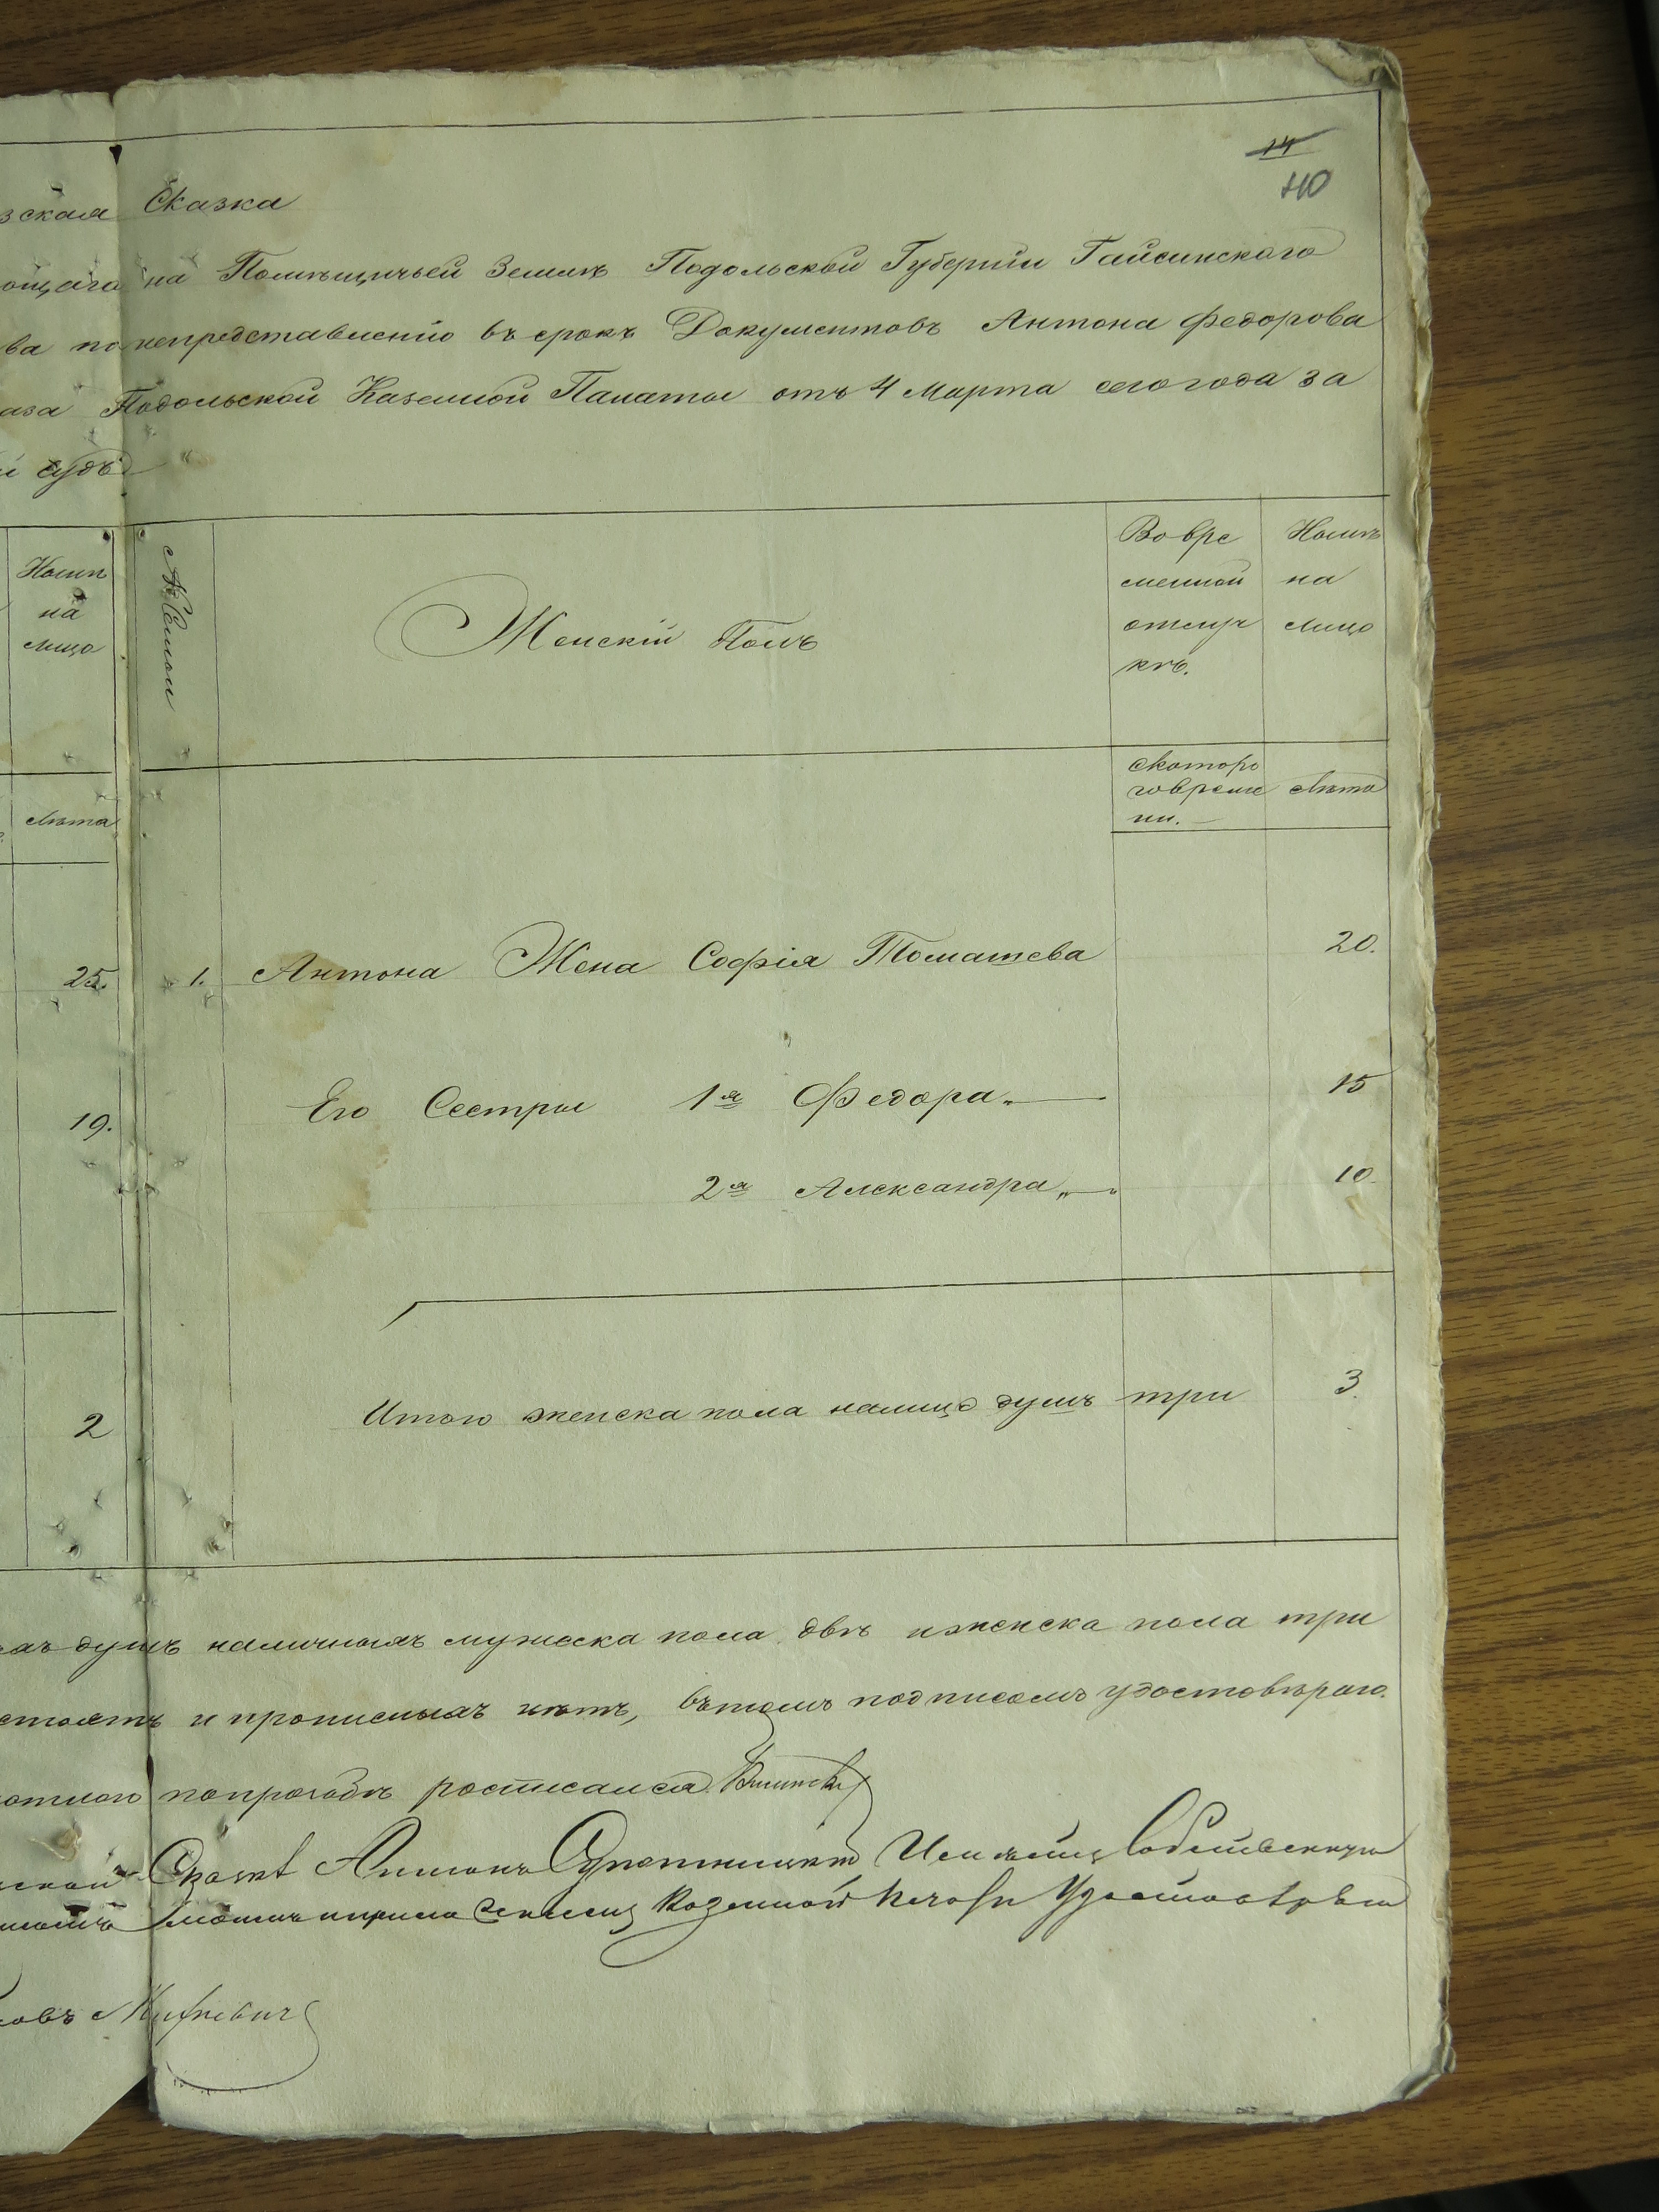 14
110
зская Сказка
ющаго на Помѣщичьей Землѣ Подольской Губерніи Гайсинскаго
ва по непредставленію въ срокъ Документовъ Антона Федорова
аза Подольской Казенной Палаты отъ 4 Марта сего года за
й судъ
Налицо
на
лицо
№ Семьи
Женскій Полъ
Во вре
менной
отлуч
кѣ.
Налѣ
на
лицо
Лѣта
скоторо
говреме
ни.
Лѣта
25. 1. Антона Жена Софія Томашева 20.
19. Его Сестры 1я Федора 15
2я Александра 10.
2 Итого женска пола налицо душъ три 3.
хъ душъ наличныхъ мужеска пола двѣ и женска пола три
стоятъ и прописныхъ нѣтъ, въ томъ подписомъ удостовѣряю.
мотного попрозбѣ росписался
ской Сказкѣ Антонъ
Казенной Удостовѣряю